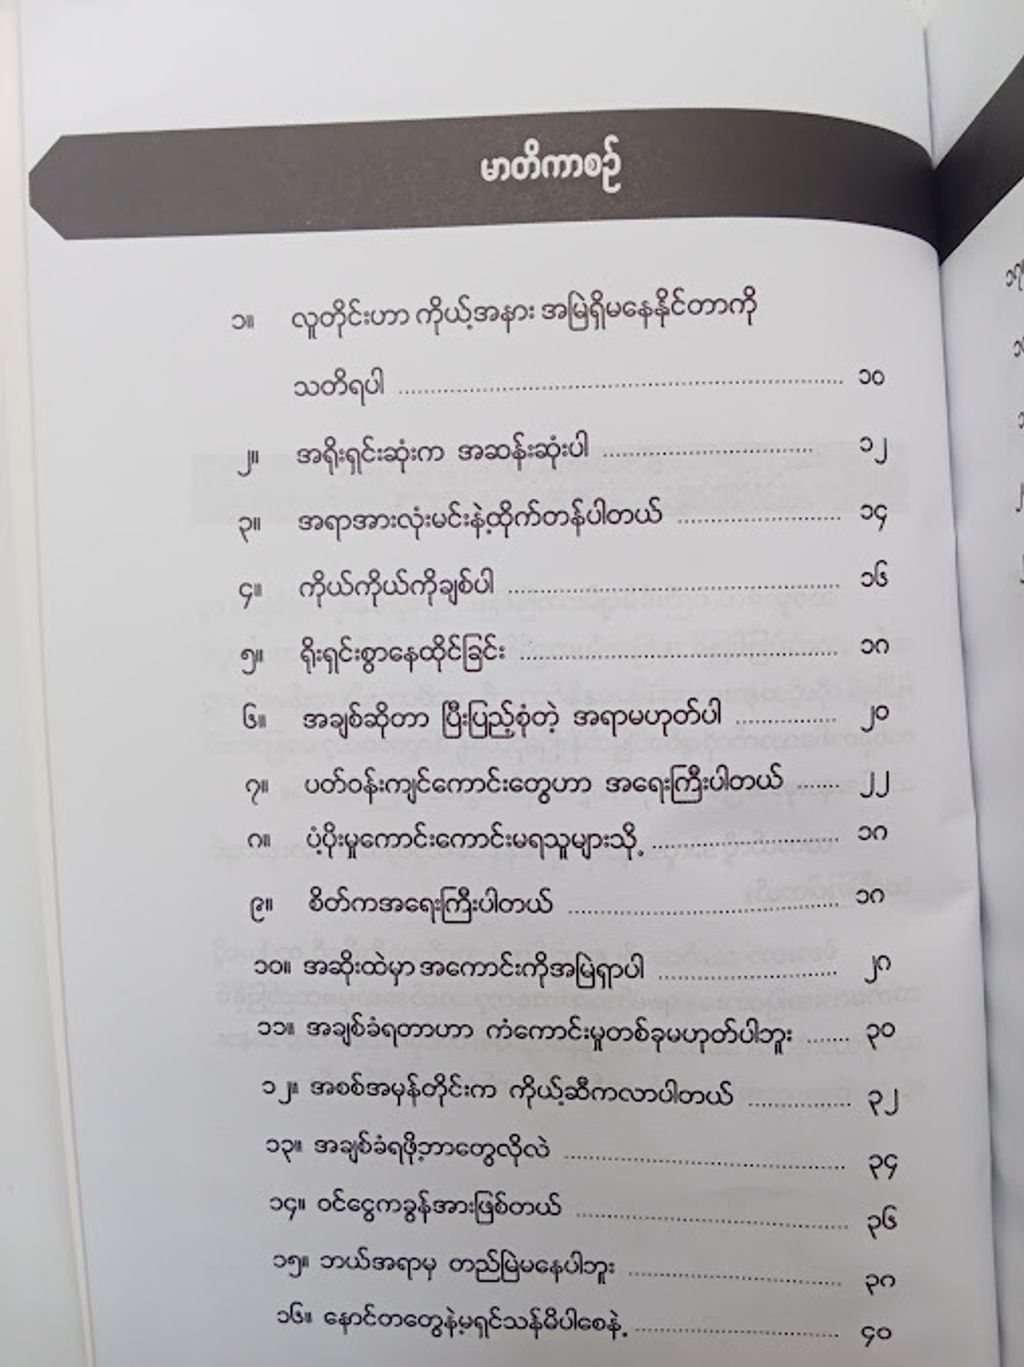 မာတိကာစဉ်
၁။ လူတိုင်းဟာ ကိုယ့်အနား အမြဲရှိမနေနိုင်တာကို
သတိရပါ ........................................ ၁၀
၂။ အရိုးရှင်းဆုံးက အဆန်းဆုံးပါ .................... ၁၂
၃။ အရာအားလုံးမင်းနဲ့ထိုက်တန်ပါတယ် ............... ၁၄
၄။ ကိုယ်ကိုယ်ကိုချစ်ပါ .............................. ၁၆
၅။ ရိုးရှင်းစွာနေထိုင်ခြင်း ............................. ၁၈
၆။ အချစ်ဆိုတာ ပြီးပြည့်စုံတဲ့ အရာမဟုတ်ပါ ......... ၂၀
၇။ ပတ်ဝန်းကျင်ကောင်းတွေဟာ အရေးကြီးပါတယ် ...... ၂၂
၈။ ပံ့ပိုးမှုကောင်းကောင်းမရသူများသို့ .................. ၁၈
၉။ စိတ်ကအရေးကြီးပါတယ် ......................... ၁၈
၁၀။ အဆိုးထဲမှာ အကောင်းကိုအမြဲရှာပါ ............... ၂၈
၁၁။ အချစ်ခံရတာဟာ ကံကောင်းမှုတစ်ခုမဟုတ်ပါဘူး ...... ၃၀
၁၂။ အစစ်အမှန်တိုင်းက ကိုယ့်ဆီကလာပါတယ် ......... ၃၂
၁၃။ အချစ်ခံရဖို့ဘာတွေလိုလဲ ......................... ၃၄
၁၄။ ဝင်ငွေကခွန်အားဖြစ်တယ် ........................ ၃၆
၁၅။ ဘယ်အရာမှ တည်မြဲမနေပါဘူး .................. ၃၈
၁၆။ နောင်တတွေနဲ့မရှင်သန်မိပါစေနဲ့ .................. ၄၀